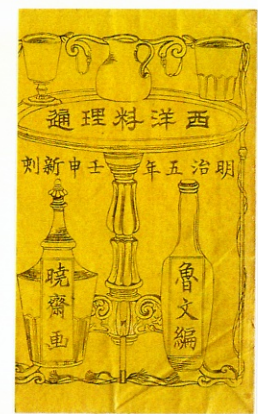 西洋料理通
明治五年 壬申新刻
魯文編
曉齋画